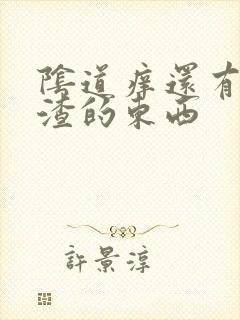 陰道癢還有
渣的東西
許景淳